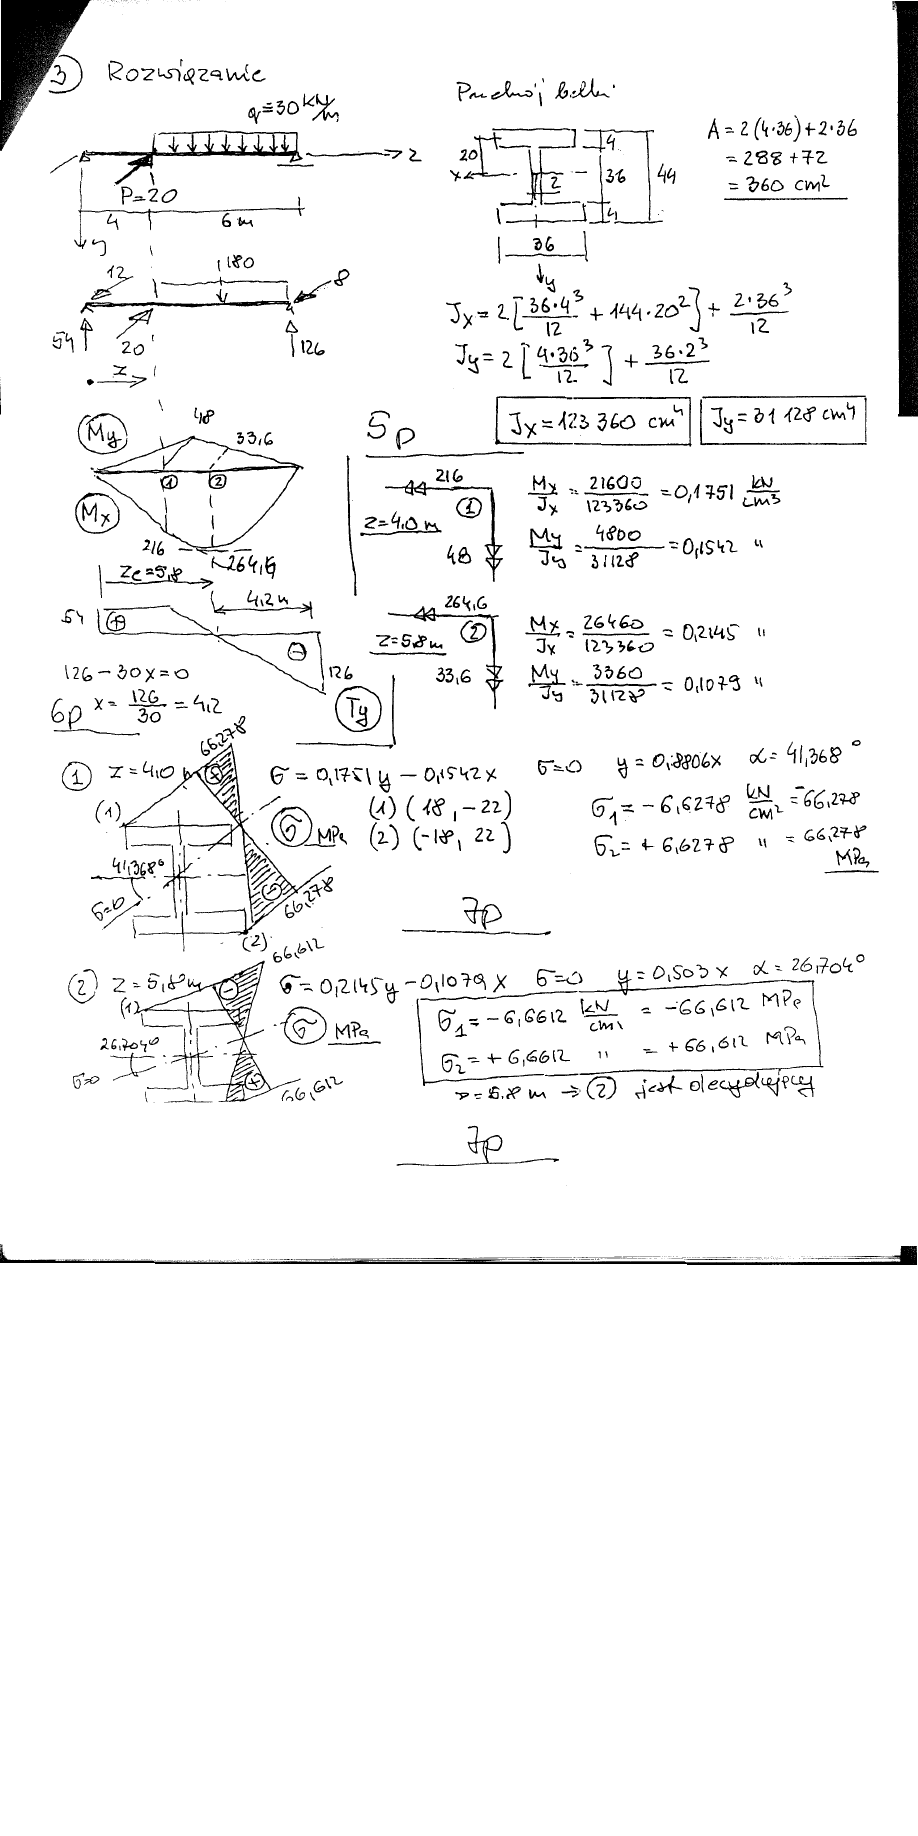 3 Rozwiązanie
q=30 kN/m
z
P=20
4 6 m
y
12 180 8
54 20 126
z
Przekrój belki
20 4
x 2 36 44
4
36
y
A = 2(4·36)+2·36
= 288 + 72
= 360 cm²
Jx = 2[36·4³/12 + 144·20²] + 2·36³/12
Jy = 2[4·36³/12] + 36·2³/12
Jx = 123 360 cm⁴ Jy = 31 128 cm⁴
My 48 33,6
1 2
Mx
216 264,6
Zc=5,8
4,2m
54 + −
126
126 − 30x = 0
x = 126/30 = 4,2
6p
Ty
5p
216
1
z=4,0 m
48
Mx/Jx = 21600/123360 = 0,1751 kN/cm³
My/Jy = 4800/31128 = 0,1542 "
264,6
2
z=5,8 m
33,6
Mx/Jx = 26460/123360 = 0,2145 "
My/Jy = 3360/31128 = 0,1079 "
1 z=4,0 m σ = 0,1751y − 0,1542x σ=0 y = 0,8806x α = 41,368°
66,278
+
(1) σ MPa (1) (18, −22) σ1 = −6,6278 kN/cm² = −66,278
(2) (−18, 22) σ2 = + 6,6278 " = 66,278 MPa
41,368°
σ=0
−
66,278
(2)
7p
66,612
2 z = 5,8 m σ = 0,2145y − 0,1079x σ=0 y = 0,503x α = 26,704°
−
(1) σ MPa
26,704°
σ=0
+
66,612
σ1 = −6,6612 kN/cm² = −66,612 MPa
σ2 = + 6,6612 " = +66,612 MPa
z=5.8 m → (2) jest decydujący
7p